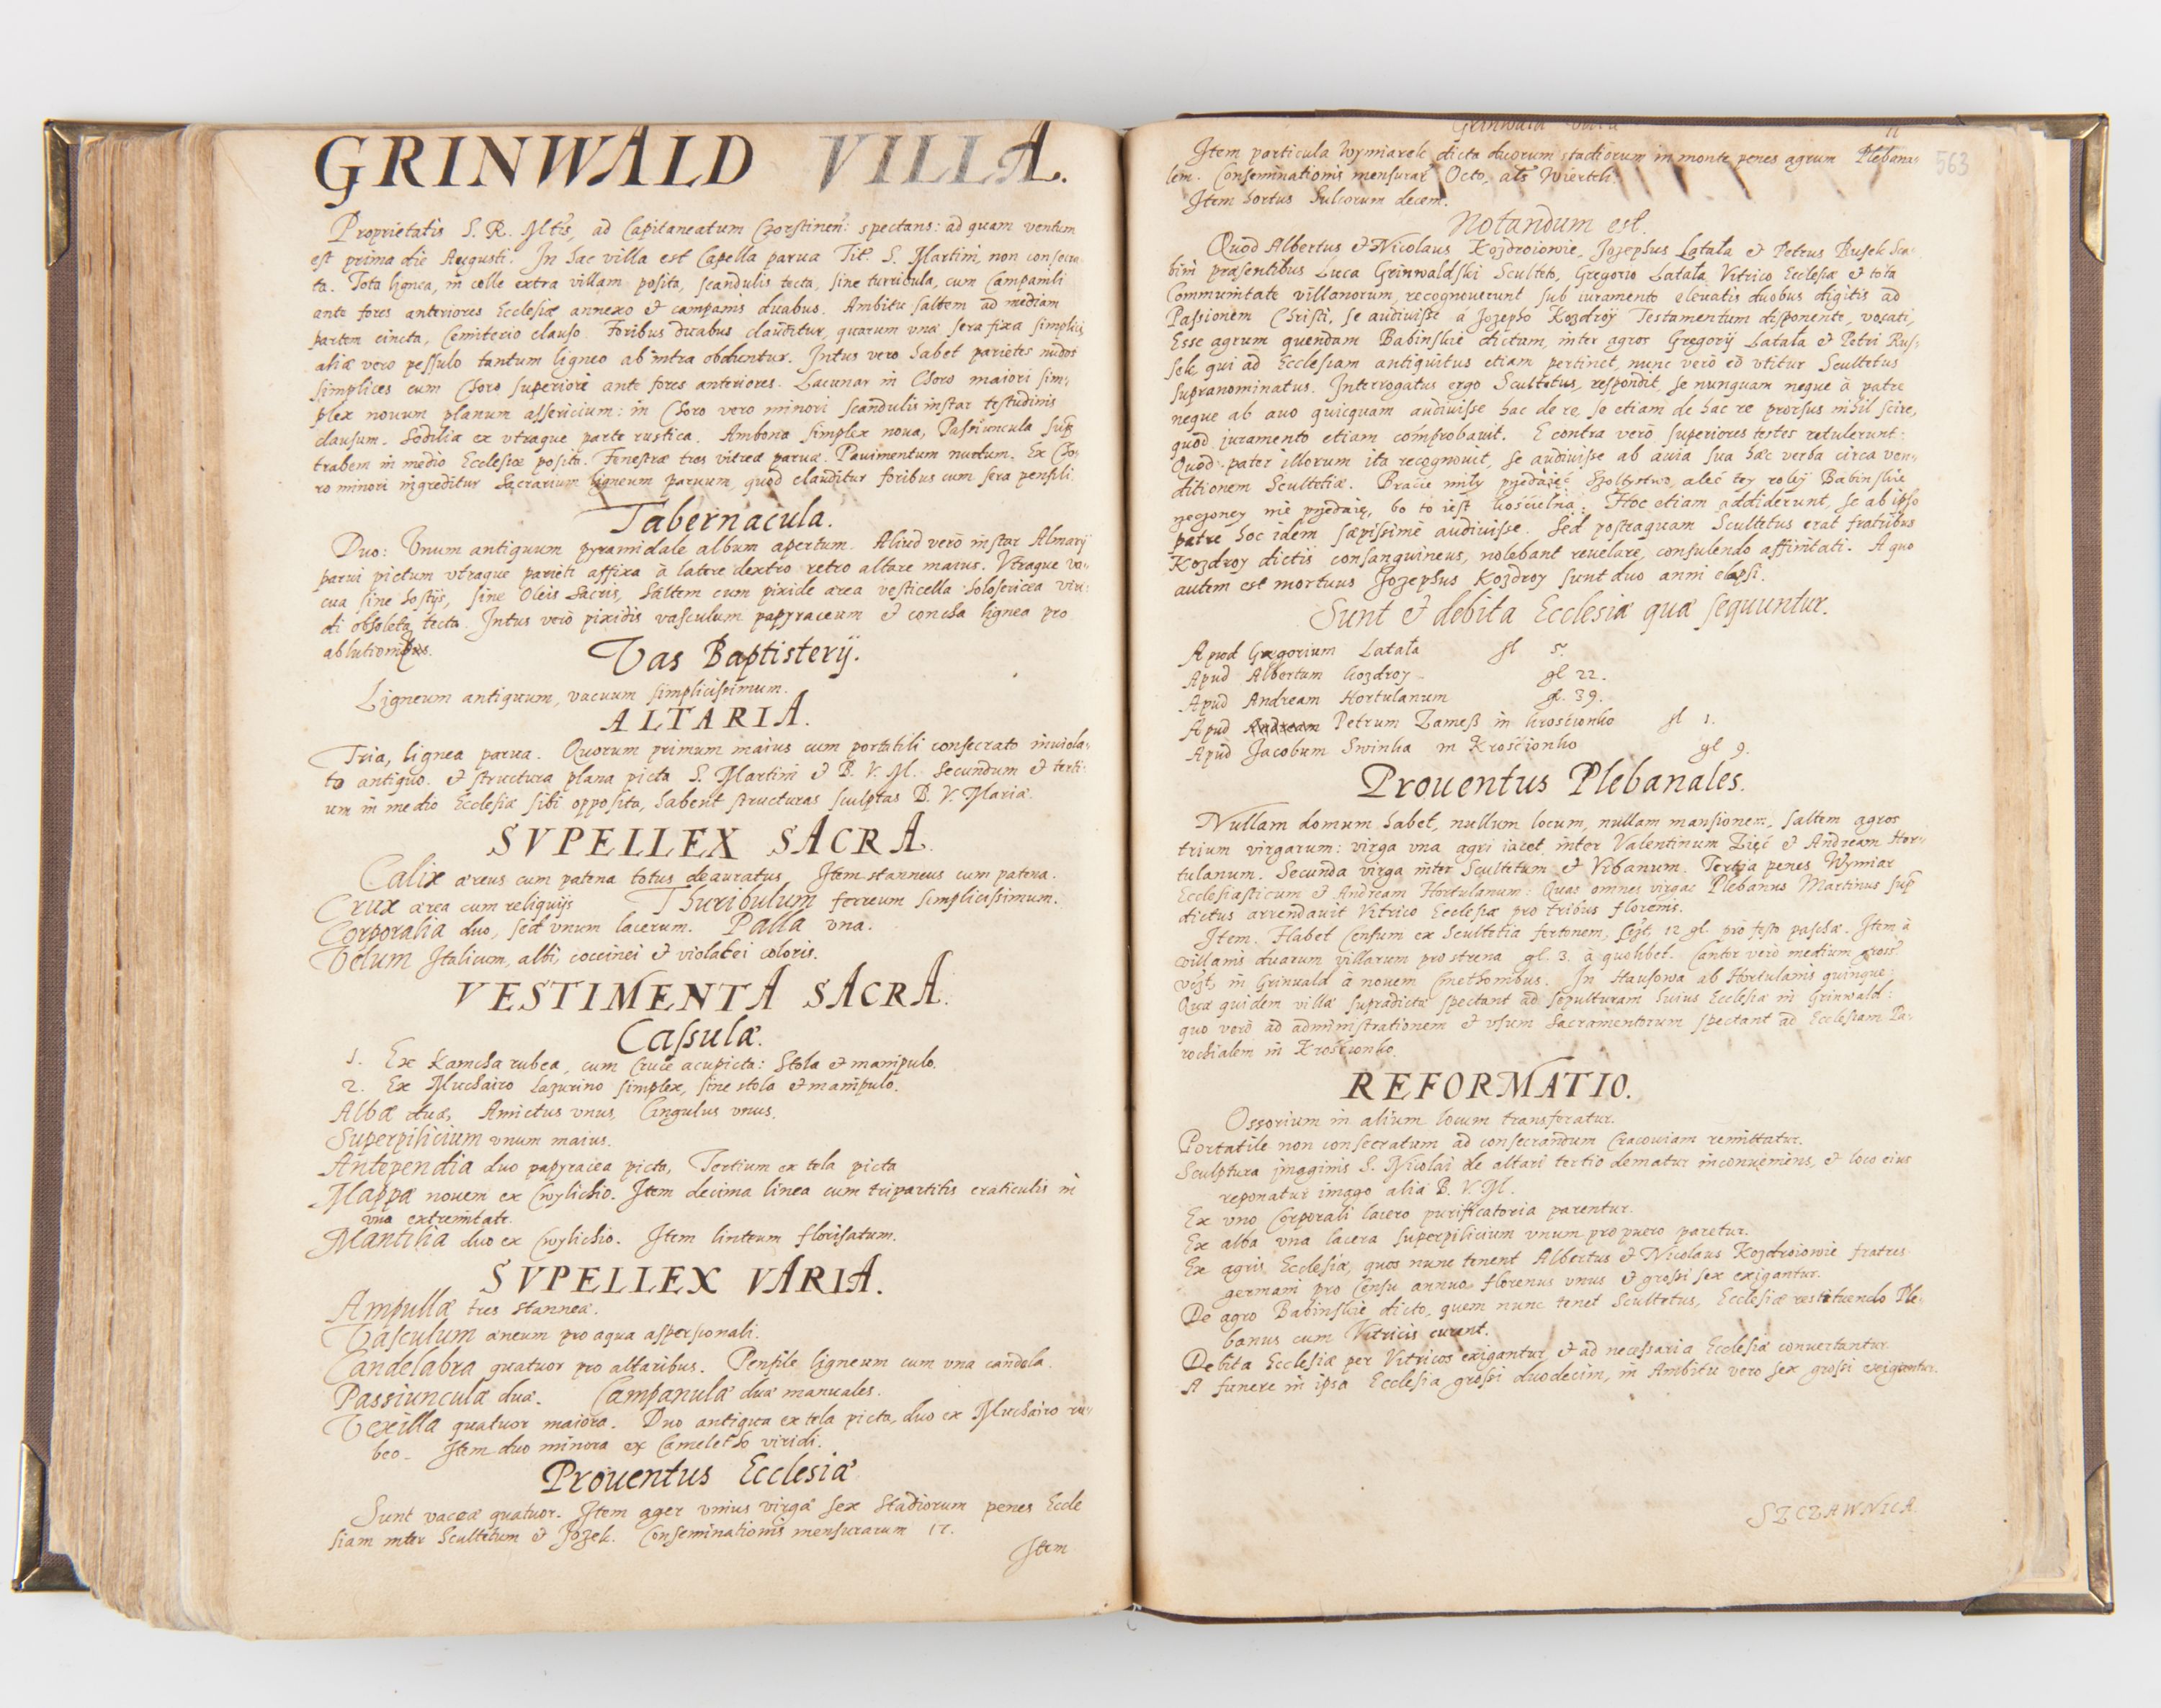 GRINWALD VILLA.
Proprietatis S. R. Mtis, ad Capitaneatum Czorstinen: spectans: ad quam ventum
est prima die Augusti. In hac villa est Capella parua Tit. S. Martini, non consecra-
ta. Tota lignea, in colle extra villam posita, scandulis tecta, sine turricula, cum Campanili
ante fores anteriores Ecclesiæ annexo & campanis duabus. Ambitu saltem ad mediam
partem cincta, Cemiterio clauso. Foribus duabus clauditur, quarum vna sera fixa simplici,
aliæ vero pessulo tantum ligneo ab intra obduntur. Intus vero habet parietes nudos
simplices cum Choro superiori ante fores anteriores. Lacunar in Choro maiori sim-
plex nouum planum assericium: in Choro vero minori scandulis instar testudinis
clausum. Sedilia ex vtraque parte rustica. Ambona simplex noua, Passiuncula sup
trabem in medio Ecclesiæ posita. Fenestræ tres vitreæ paruæ. Pauimentum nudum. Ex Cho-
ro minori ingreditur Sacrarium ligneum paruum, quod clauditur foribus cum sera pensili
Tabernacula.
Duo: Vnum antiquum pyramidale album apertum. Aliud verò instar Almarij
parui pictum vtraque parieti affixa à latere dextro retro altare maius. Vtraque va-
cua sine hostijs, sine Oleis Sacris, Saltem cum pixide ærea vesticella holosericea viri-
di obsoleta tecta. Intus verò pixidis vasculum papyraceum & concha lignea pro
ablutionibus.
Vas Baptisterij.
Ligneum antiquum, vacuum simplicissimum.
ALTARIA.
Tria, lignea parua. Quorum primum maius cum portatili consecrato inuiola-
to antiquo. & structura plana picta S. Martini & B. V. M. Secundum & terti-
um in medio Ecclesiæ sibi opposita, habent structuras sculptas B. V. Mariæ.
SVPELLEX SACRA.
Calix æreus cum patena totus deauratus. Item stanneus cum patena.
Crux ærea cum reliquijs Thuribulum ferreum simplicissimum.
Corporalia duo, sed vnum lacerum. Palla vna.
Velum Italicum, albi, coccinei & violacei coloris.
VESTIMENTA SACRA.
Casulæ.
1. Ex Kamcha rubea, cum Cruce acupicta: Stola & manipulo.
2. Ex Muchairo Lazurino simplex, sine stola & manipulo.
Albæ duæ, Amictus vnus, Cingulus vnus.
Superpilicium vnum maius.
Antependia duo papyracea picta, Tertium ex tela picta
Mappæ nouem ex Cwylichio. Item decima linea cum tripartitis craticulis in
vna extremitate.
Mantilia duo ex Cwylichio. Item linteum florisatum.
SVPELLEX VARIA.
Ampullæ tres stanneæ.
Vasculum æneum pro aqua aspersionali.
Candelabra quatuor pro altaribus. Pensile ligneum cum vna candela.
Passiunculæ duæ. Campanulæ duæ manuales.
Vexilla quatuor maiora. Duo antiqua ex tela picta, duo ex Muchairo ru-
beo. Item duo minora ex Cameletho viridi.
Prouentus Ecclesiæ
Sunt vaccæ quatuor. Item ager vnius virgæ sex stadiorum penes Eccle
siam inter Scultetum & Jozek. Conseminationis mensurarum 17.
Item
Grinwald villa
563
Item particula Wymiarek dicta duorum stadiorum in monte penes agrum Plebana-
lem. Conseminationis mensurar Octo, als Wierteli.
Item hortus Sulcorum decem.
Notandum est.
Quod Albertus & Nicolaus Kozdroiowie, Jozephus Latała & Petrus Rusek Sca-
bini præsentibus Luca Grinwaldski Sculteto, Gregorio Latała Vitrico Ecclesiæ & tota
Communitate villanorum, recognouerunt sub iuramento eleuatis duobus digitis ad
Passionem Christi, se audiuisse à Jozepho Kozdroy Testamentum disponente, vocati,
Esse agrum quendam Babinskie dictum, inter agros Gregorij Latała & Petri Rus-
sek, qui ad Ecclesiam antiquitus etiam pertinet, nunc verò eò vtitur Scultetus
supranominatus. Interrogatus ergo Scultetus, respondit, se nunquam neque à patre
neque ab auo quicquam audiuisse hac de re, se etiam de hac re prorsus nihil scire,
quod juramento etiam comprobauit. E contra verò superiores testes retulerunt:
Quod pater illorum ita recognouit, se audiuisse ab auia sua hæc verba circa ven-
ditionem Scultetiæ. Bracie miły Szołtystwo, aleć tey roley Babinskie
nie bo to iest kościelna: Hoc etiam addiderunt, se ab ipso
patre hoc idem sæpissimè audiuisse. Sed postquam Scultetus erat fratribus
Kozdroy dictis consanguineus, nolebant reuelare, consulendo affinitati. A quo
autem est mortuus Jozephus Kozdroy sunt duo anni elapsi.
Sunt & debita Ecclesiæ quæ sequuntur.
Apud Gregorium Latała fl 5.
Apud Albertum Kozdroy gl 22.
Apud Andream Hortulanum gl. 39.
Apud Andream Petrum Zameß in Krościonko fl 1.
Apud Jacobum Swinka in Krościonko gl 9.
Prouentus Plebanales.
Nullam domum habet, nullum locum, nullam mansionem, saltem agros
trium virgarum: virga vna agri iacet inter Valentinum Zięć & Andream Hor-
tulanum. Secunda virga inter Scultetum & Vrbanum. Tertia penes Wymiar
Ecclesiasticum & Andream Hortulanum: Quas omnes virgas Plebanus Martinus sup
dictus arrendauit Vitrico Ecclesiæ pro tribus florenis.
Item. Habet Censum ex Scultetia fertonem, 12 gl. pro festo paschæ. Item à
villanis duarum villarum pro strena gl. 3. à quolibet. Cantor verò medium gross
in Grinwald à nouem Cmethonibus. In Hausowa ab Hortulanis quinque:
Quæ quidem villæ supradictæ spectant ad sepulturam huius Ecclesiæ in Grinwald:
quo verò ad administrationem & vsum Sacramentorum spectant ad Ecclesiam Pa-
rochialem in Krościonko.
REFORMATIO.
Ossorium in alium locum transferatur.
Portatile non consecratum ad consecrandum Cracouiam remittatur.
Sculptura imaginis S. Nicolai de altari tertio dematur inconueniens, & loco eius
reponatur imago alia B. V. M.
Ex vno Corporali lacero purificatoria parentur.
Ex alba vna lacera superpilicium vnum pro puero paretur.
Ex agris Ecclesiæ, quos nunc tenent Albertus & Nicolaus Kozdroiowie fratres
germani pro Censu annuo florenus vnus & grossi sex exigantur.
De agro Babinskie dicto, quem nunc tenet Scultetus, Ecclesiæ restituendo Ple-
banus cum Vitricis curent.
Debita Ecclesiæ per Vitricos exigantur & ad necessaria Ecclesiæ conuertantur.
A funere in ipsa Ecclesia grossi duodecim, in Ambitu vero sex grossi exigantur.
SZCZAWNICA